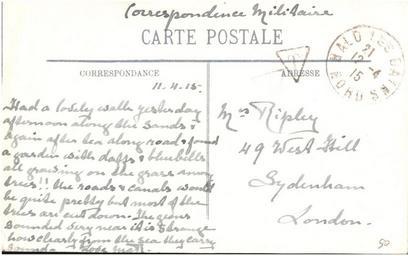 Correspondence Militaire
CARTE POSTALE
CORRESPONDANCE
ADRESSE
T
MALO LES BAINS
21
12-4
15
NORD
11.4.15.
Had a lovely walk yesterday
afternoon along the sands &
again after tea along road & found
a garden with daffs & bluebells
all growing on the grass among
trees!! the roads & canals would
be quite pretty but most of the
trees are cut down. The guns
sounded very near it is strange
how clearly from the sea they carry
sounds.
Mrs Ripley
49 West Hill
Sydenham
London.